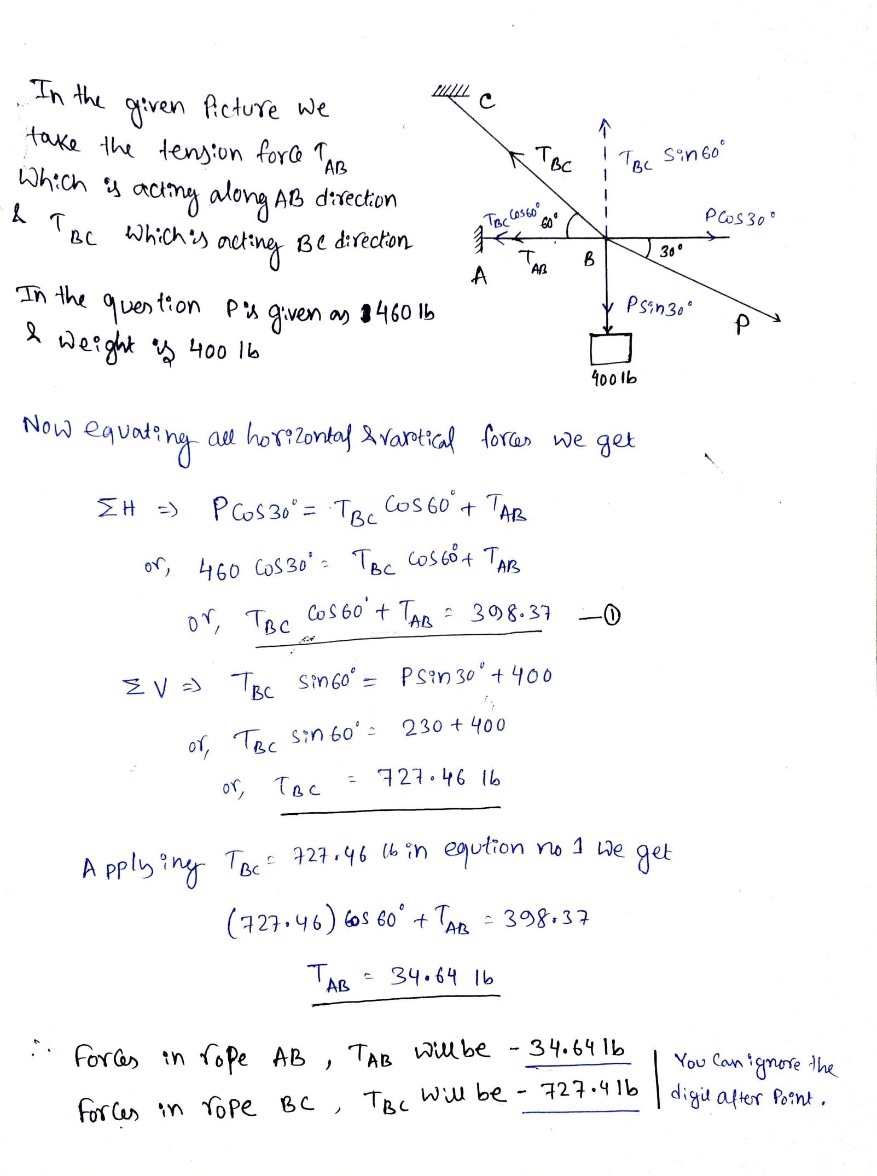 In the given Picture we
take the tension force T_AB
Which is acting along AB direction
& T_BC Which is acting BC direction
In the question P is given as 460 lb
& weight is 400 lb
C
T_BC
T_BC Sin60°
T_BC Cos60°
60°
P Cos30°
A
T_AB
B
30°
P Sin30°
P
400 lb
Now equating all horizontal & varotical forces we get
ΣH ⇒ P Cos30° = T_BC Cos60° + T_AB
or, 460 Cos30° = T_BC Cos60° + T_AB
or, T_BC Cos60° + T_AB = 398.37 —①
ΣV ⇒ T_BC Sin60° = P Sin30° + 400
or, T_BC Sin60° = 230 + 400
or, T_BC = 727.46 lb
Applying T_BC = 727.46 lb in eqution no 1 we get
(727.46) Cos 60° + T_AB = 398.37
T_AB = 34.64 lb
∴ Forces in rope AB, T_AB will be - 34.64 lb
Forces in rope BC, T_BC Will be - 727.4 lb
You Can ignore the
digit after Point.